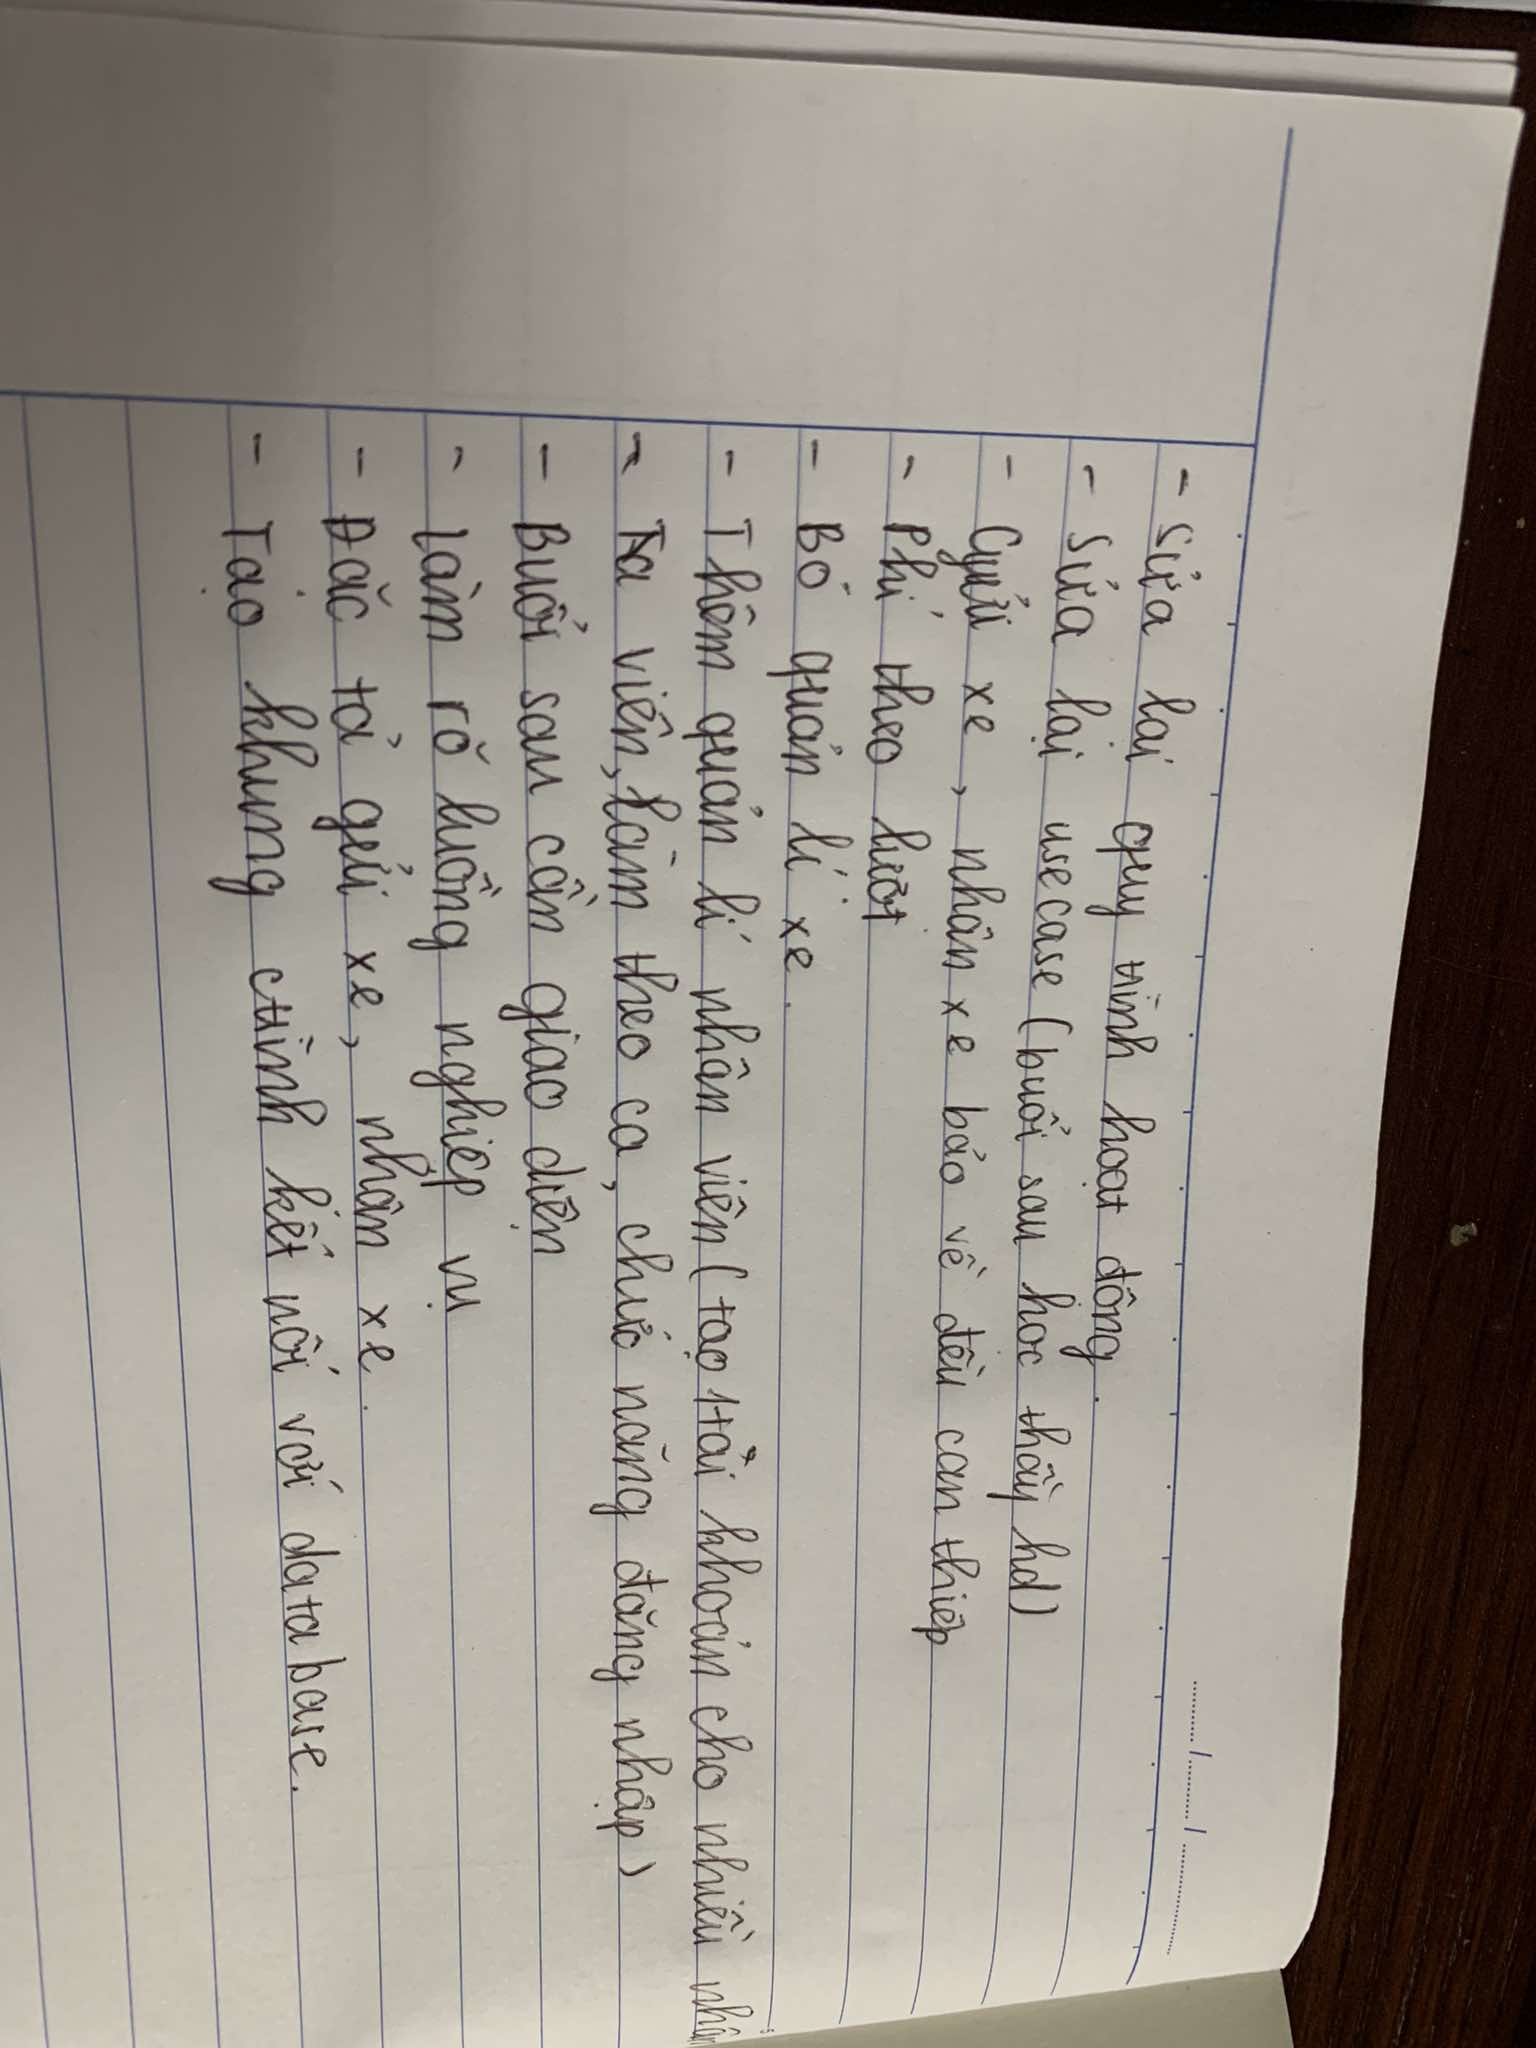 - Sửa lại quy trình hoạt động.
- Sửa lại usecase (buổi sau học thầy hd)
- Gửi xe, nhận xe bảo vệ đều can thiệp
- Phí theo lượt
- Bỏ quản lí xe.
- Thêm quản lí nhân viên (tạo 1 tài khoản cho nhiều nhân
- viên, làm theo ca, chức năng đăng nhập)
- Buổi sau cần giao diện
- Làm rõ luồng nghiệp vụ
- Đặc tả gửi xe, nhận xe.
- Tạo khung ctrình kết nối với database.